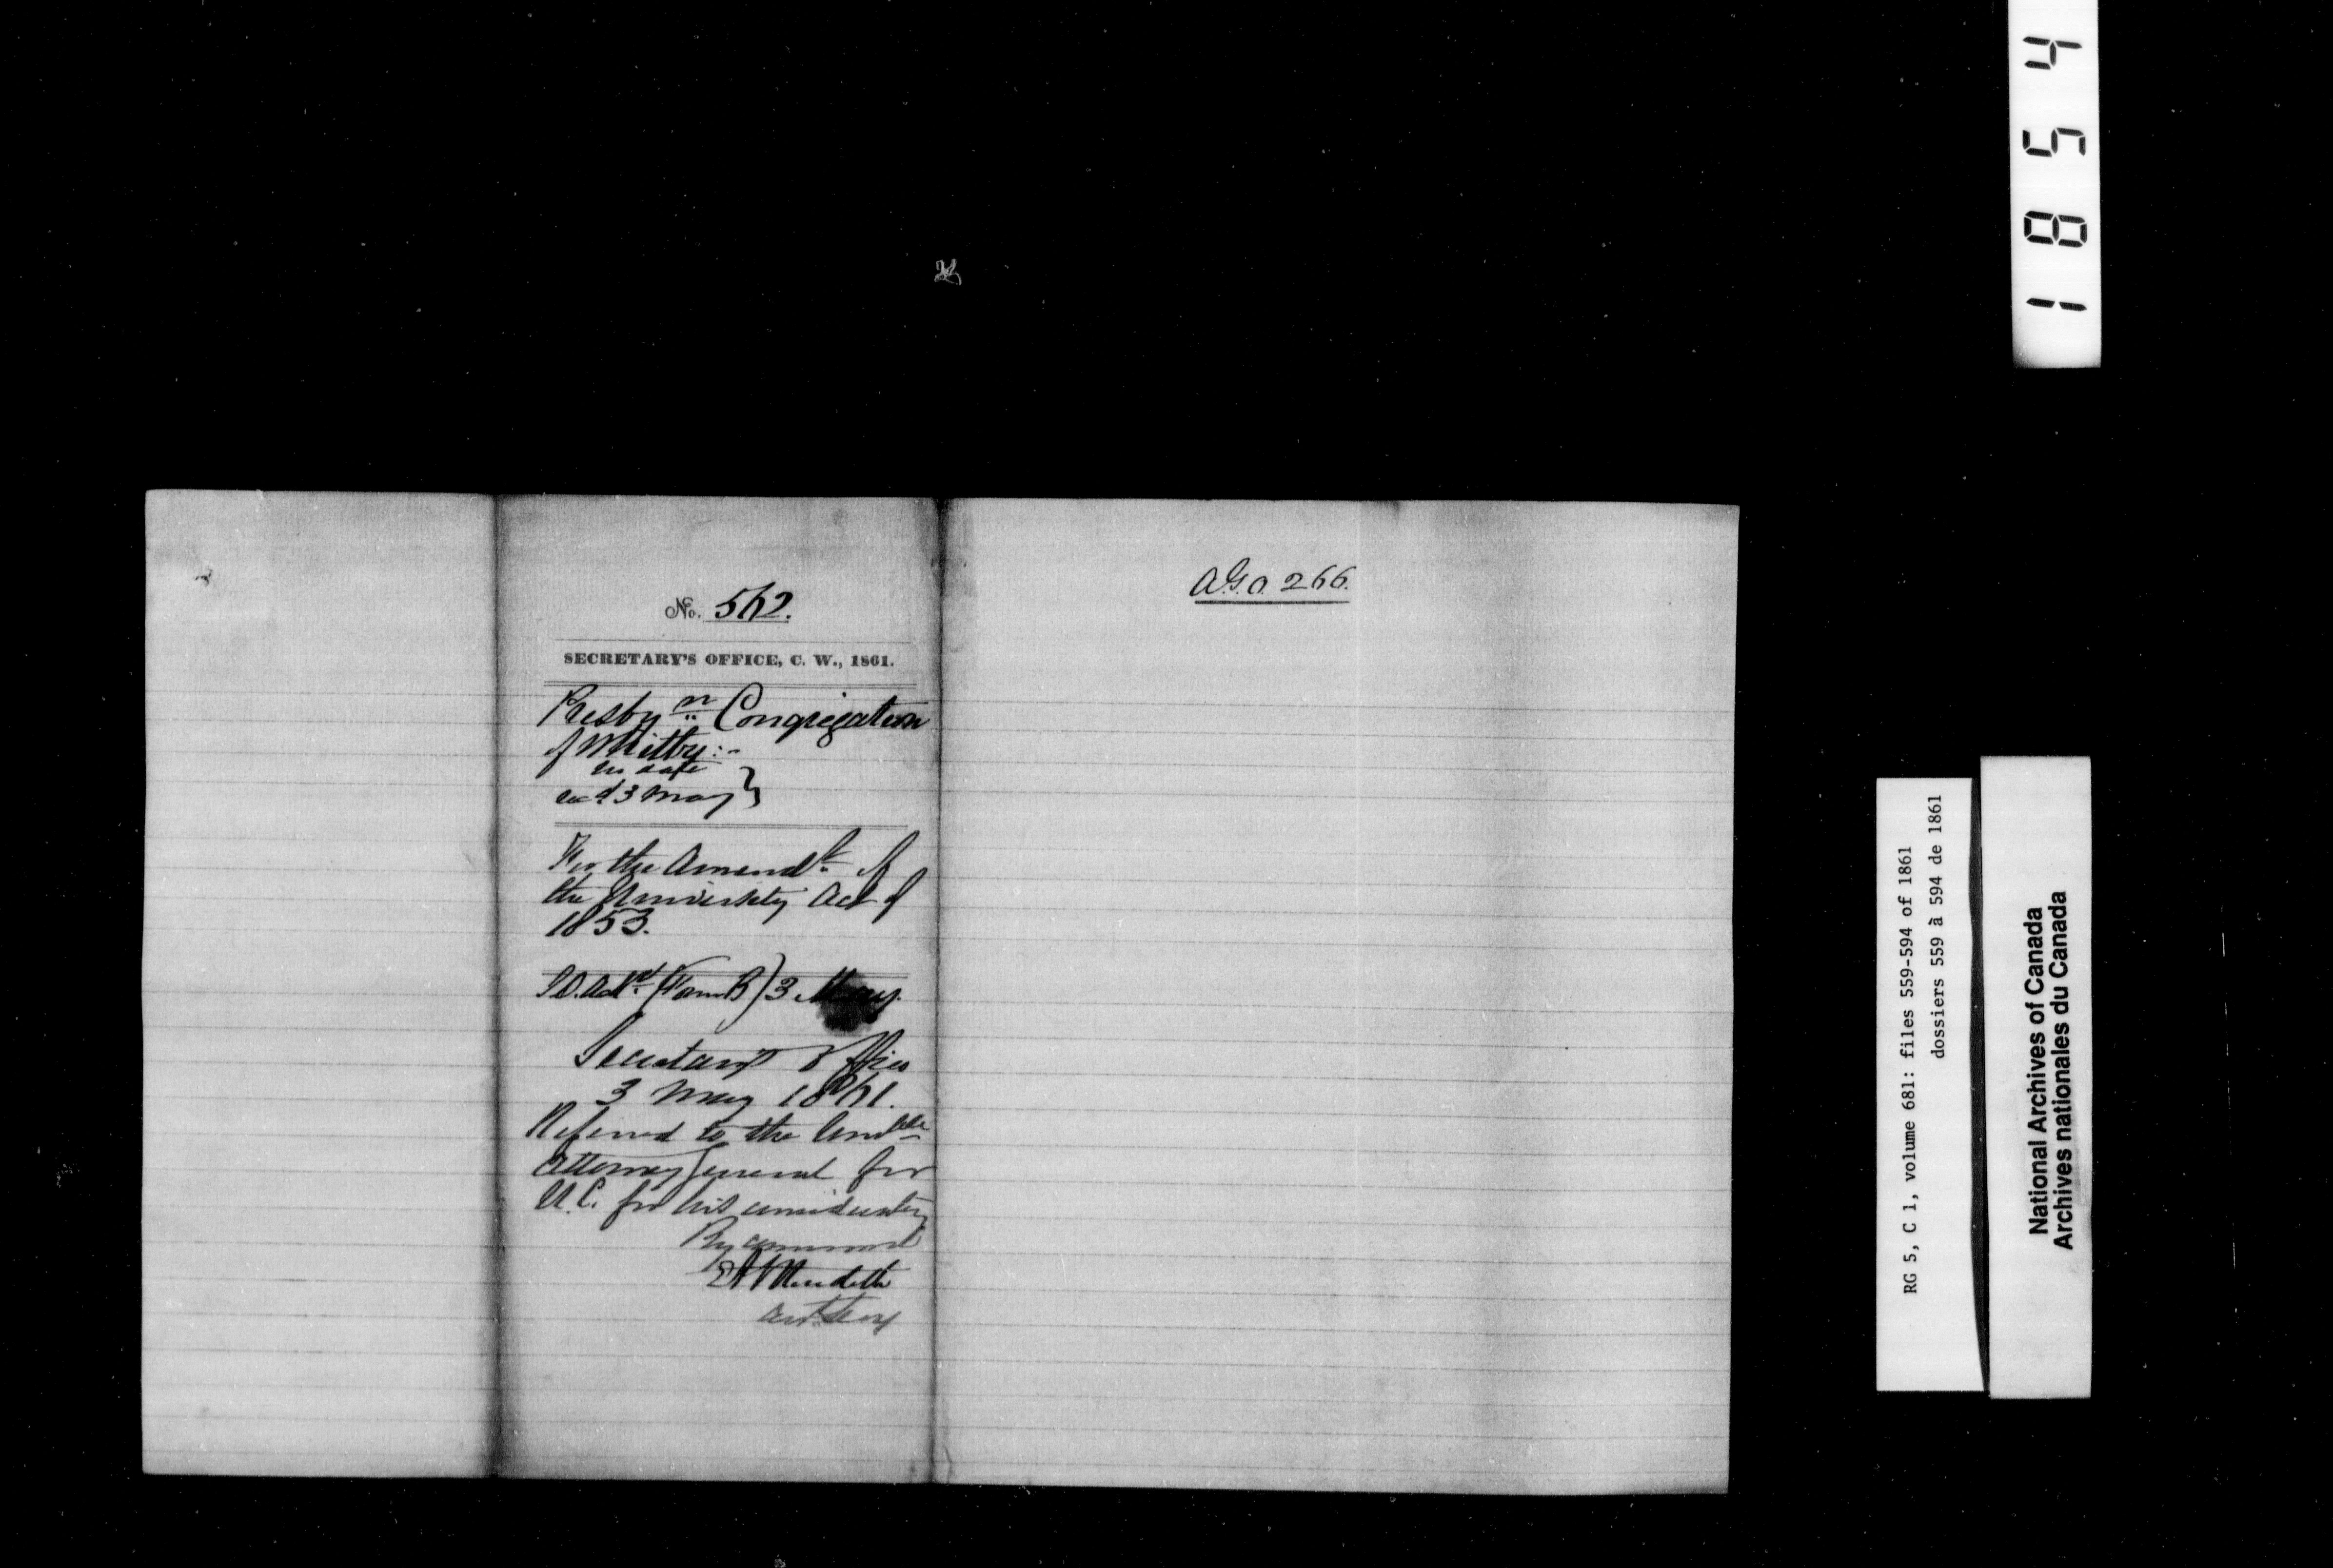 No. 562.
SECRETARY'S OFFICE, C. W., 1861.
Presbyn Congregation
of Whitby:-
no date
recd 3 May
For the Amendt of
the University Act of
1853.
(Form B) 3 May.
Secretary's Office
3 May 1861.
Referred to the Honble
Attorney General for
U.C. for his consideration
By command
EA Meredith
Asst. Secy
A.G.O. 266.
1854
RG 5, C 1, volume 681: files 559-594 of 1861
dossiers 559 à 594 de 1861
National Archives of Canada
Archives nationales du Canada